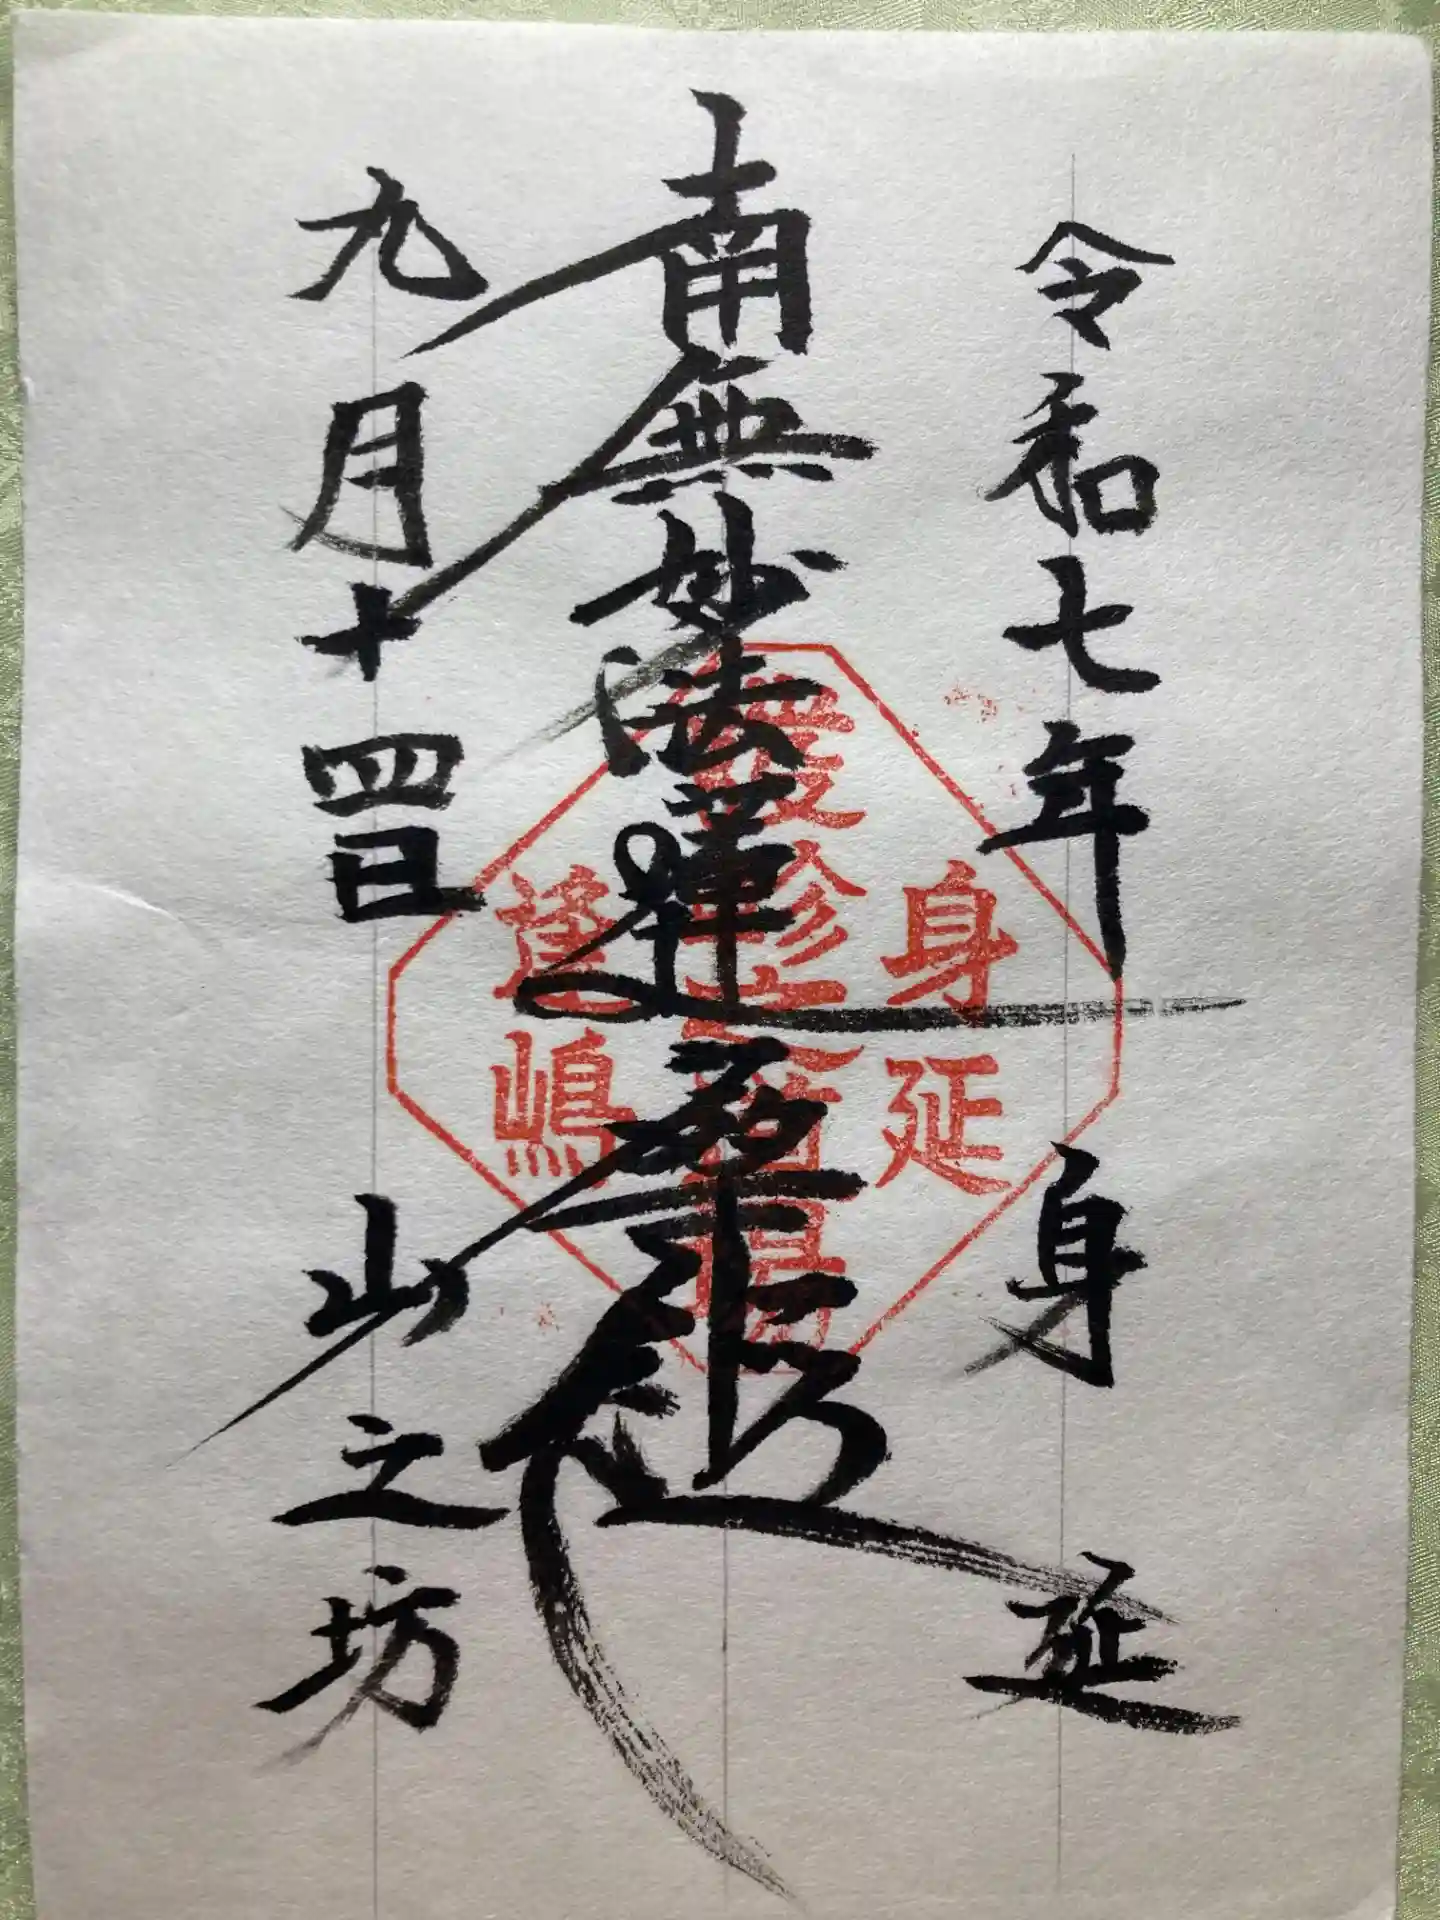 令和七年 身延
南無妙法蓮華経
九月十四日 山之坊
身延
蓬嶋